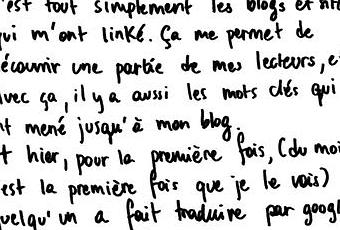 'est tout simplement les blogs et sit
qui m'ont linké. Ça me permet de
écouvrir une partie de mes lecteurs, e
avec ça, il y a aussi les mots clés qui
nt mené jusqu'à mon blog.
t hier, pour la première fois, (du moi
est la première fois que je le vois)
quelqu'un a fait traduire par googl